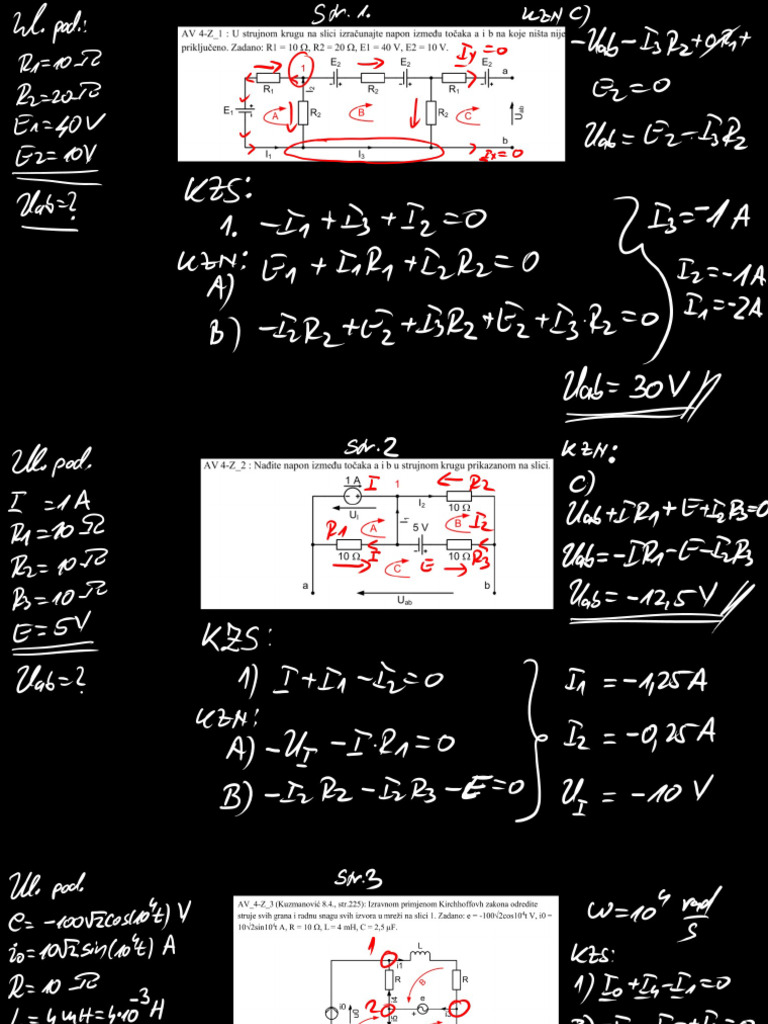 Str. 1.
Ul. pod.:
R1=10Ω
R2=20Ω
E1=40V
E2=10V
Uab=?
AV 4-Z_1 : U strujnom krugu na slici izračunajte napon između točaka a i b na koje ništa nije
priključeno. Zadano: R1 = 10 Ω, R2 = 20 Ω, E1 = 40 V, E2 = 10 V.
1
E2
E2
Iy=0
E2
a
R1
I2
R2
R1
E1
A
R2
B
R2
C
Uab
b
I1
I3
Ix=0
KZN C)
-Uab-I3R2+0·R1+
E2=0
Uab=E2-I3R2
KZS:
1. -I1+I3+I2=0
KZN:
A) E1+I1R1+I2R2=0
B) -I2R2+E2+I3R2+E2+I3·R2=0
I3=-1A
I2=-1A
I1=-2A
Uab=30V
Str. 2
Ul. pod.
I =1A
R1=10Ω
R2=10Ω
R3=10Ω
E=5V
Uab=?
AV 4-Z_2 : Nađite napon između točaka a i b u strujnom krugu prikazanom na slici.
1 A
I
1
R2
UI
I2
10 Ω
R1
A
I1
5 V
B
I2
10 Ω
I
C
E
10 Ω
R3
a
b
Uab
KZN:
C)
Uab+IR1+E+I2R3=0
Uab=-IR1-E-I2R3
Uab=-12,5V
KZS:
1) I+I1-I2=0
KZN:
A) -UI-I·R1=0
B) -I2R2-I2R3-E=0
I1 =-1,25A
I2 =-0,25A
UI =-10V
Str. 3
Ul. pod.
e=-100√2cos(10⁴t) V
i0=10√2sin(10⁴t) A
R=10 Ω
L=4mH=4·10⁻³H
AV_4-Z_3 (Kuzmanović 8.4., str.225): Izravnom primjenom Kirchhoffovh zakona odredite
struje svih grana i radnu snagu svih izvora u mreži na slici 1. Zadano: e = -100√2cos10⁴t V, i0 =
10√2sin10⁴t A, R = 10 Ω, L = 4 mH, C = 2,5 µF.
1
L
i1
R
R
B
2
i0
e
ω=10⁴ rad/s
KZS:
1) I0+I4-I1=0